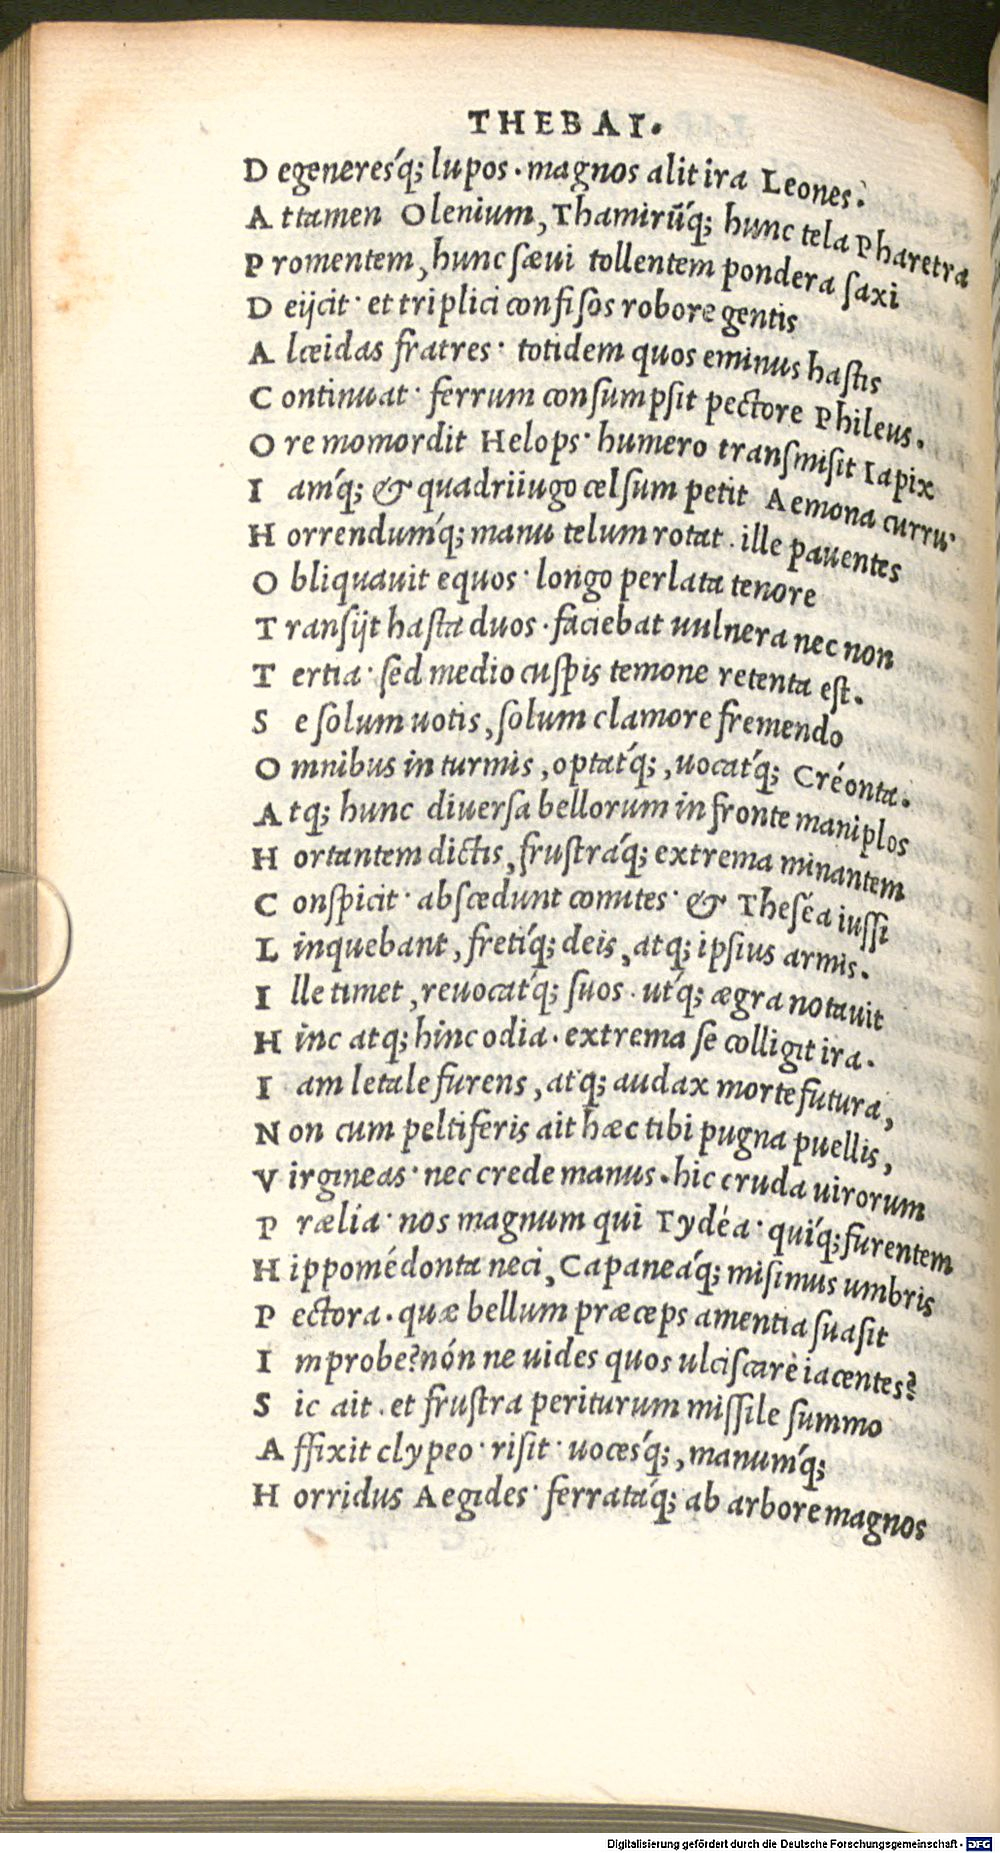 THEBAI.
D egeneresq́; lupos. magnos alit ira Leones.
A ttamen Olenium, Thamirūq́; hunc tela Pharetra
P romentem, hunc sæui tollentem pondera saxi
D eijcit· et triplici confisos robore gentis
A lceidas fratres· totidem quos eminus hastis
C ontinuat· ferrum consumpsit pectore Phileus.
O re momordit Helops· humero transmisit Iapix
I amq́; & quadriiugo celsum petit Aemona curru·
H orrendumq́; manu telum rotat. ille pauentes
O bliquauit equos· longo perlata tenore
T ransijt hasta duos. faciebat uulnera nec non
T ertia· sed medio cuspis temone retenta est.
S e solum uotis, solum clamore fremendo
O mnibus in turmis, optatq́;, uocatq́; Créonta.
A tq; hunc diuersa bellorum in fronte maniplos
H ortantem dictis, frustráq; extrema minantem
C onspicit· abscedunt comites· & Theséa iussi
L inquebant, fretiq́; deis, atq; ipsius armis.
I lle timet, reuocatq́; suos. utq́; ægra notauit
H inc atq; hinc odia. extrema se colligit ira.
I am letale furens, atq; audax morte futura,
N on cum peltiferis ait hæc tibi pugna puellis,
V irgineas· nec crede manus. hic cruda uirorum
P rælia· nos magnum qui Tydéa· quiq́; furentem
H ippomédonta neci, Capaneáq; misimus umbris
P ectora. quæ bellum præceps amentia suasit
I mprobe? nón ne uides quos ulciscare iacentes?
S ic ait. et frustra periturum missile summo
A ffixit clypeo· risit· uocesq́;, manumq́;
H orridus Aegides· ferratáq; ab arbore magnos
Digitalisierung gefördert durch die Deutsche Forschungsgemeinschaft - DFG